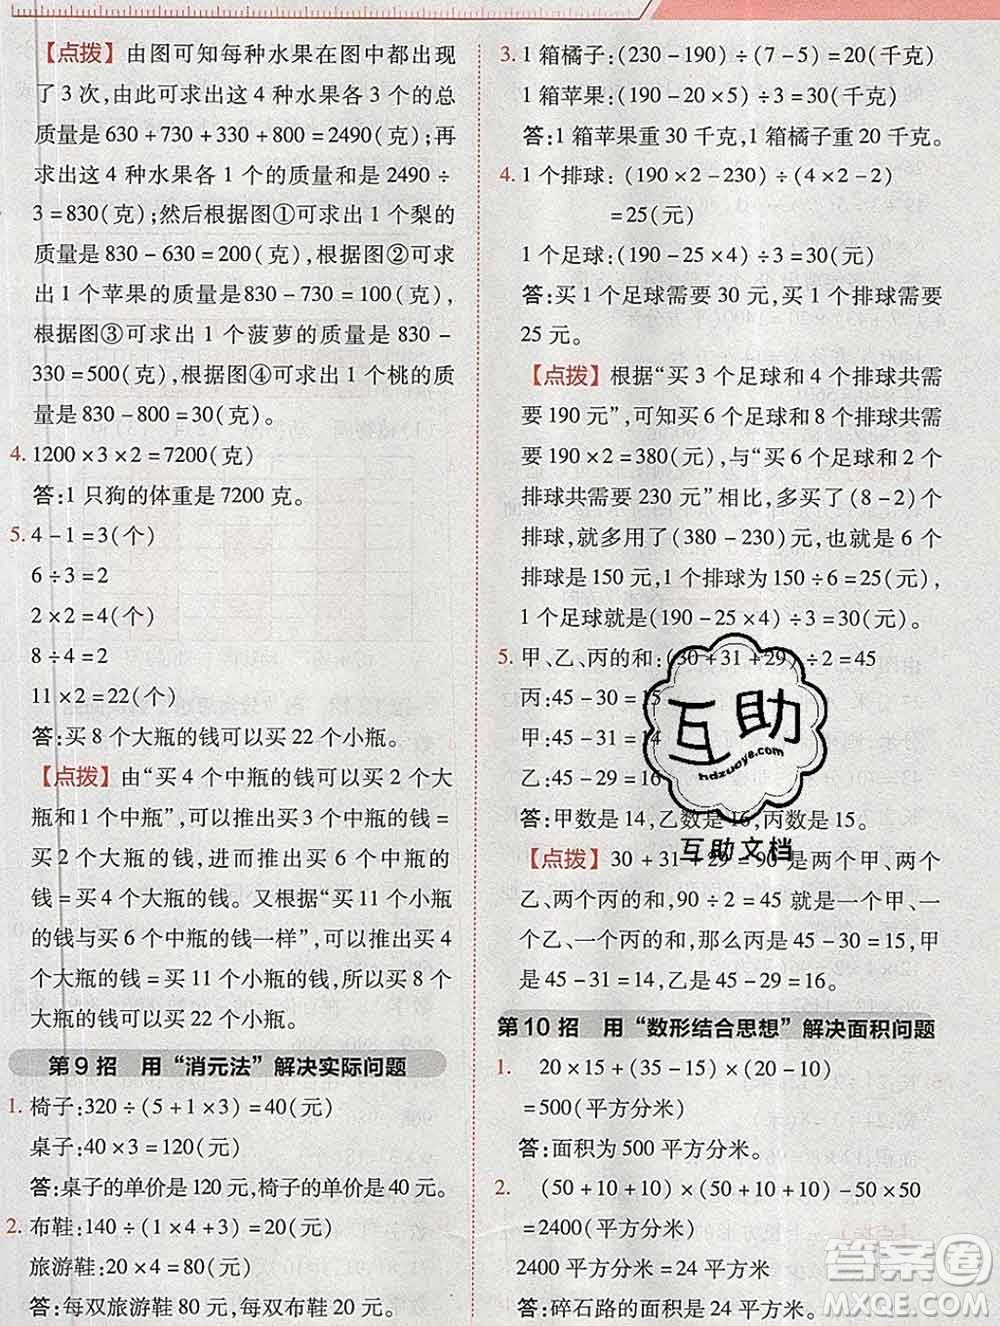 【点拨】由图可知每种水果在图中都出现
了3次,由此可求出这4种水果各3个的总
质量是630+730+330+800=2490(克);再
求这4种水果各1个的质量和是2490÷
3=830(克);然后根据图①可求出1个梨的
质量是830-630=200(克),根据图②可求
出1个苹果的质量是830-730=100(克),
根据图③可求出1个菠萝的质量是830-
330=500(克),根据图④可求出1个桃的质
量是830-800=30(克)。
4. 1200×3×2=7200(克)
答:1只狗的体重是7200克。
5. 4-1=3(个)
6÷3=2
2×2=4(个)
8÷4=2
11×2=22(个)
答:买8个大瓶的钱可以买22个小瓶。
【点拨】由“买4个中瓶的钱可以买2个大
瓶和1个中瓶”,可以推出买3个中瓶的钱=
买2个大瓶的钱,进而推出买6个中瓶的钱
=买4个大瓶的钱。又根据“买11个小瓶
的钱与买6个中瓶的钱一样”,所以买4
个大瓶的钱=买11个小瓶的钱,所以买8个
大瓶的钱可以买22个小瓶。
第9招 用“消元法”解决实际问题
1. 椅子:320÷(5+1×3)=40(元)
桌子:40×3=120(元)
答:桌子的单价是120元,椅子的单价是40元。
2. 布鞋:140÷(1×4+3)=20(元)
旅游鞋:20×4=80(元)
答:每双旅游鞋80元,每双布鞋20元。
3. 1箱橘子:(230-190)÷(7-5)=20(千克)
1箱苹果:(190-20×5)÷3=30(千克)
答:1箱苹果重30千克,1箱橘子重20千克。
4. 1个排球:(190×2-230)÷(4×2-2)
=25(元)
1个足球:(190-25×4)÷3=30(元)
答:买1个足球需要30元,买1个排球需要
25元。
【点拨】根据“买3个足球和4个排球共需
要190元”,可知买6个足球和8个排球共需
要190×2=380(元),与“买6个足球和2个
排球共需要230元”相比,多买了(8-2)个
排球,就是多用了(380-230)元,也就是6个
排球是150元,1个排球为150÷6=25(元),
1个足球是(190-25×4)÷3=30(元)。
5. 甲、乙、丙的和:(30+31+29)÷2=45
丙:45-30=15
甲:45-31=14
乙:45-29=16
答:甲数是14,乙数是16,丙数是15。
【点拨】30+31+29=90是两个甲、两个
乙、两个丙的和,90÷2=45就是一个甲、一
个乙、一个丙的和,那么丙是45-30=15,甲
是45-31=14,乙是45-29=16。
第10招 用“数形结合思想”解决面积问题
1. 20×15+(35-15)×(20-10)
=500(平方分米)
答:面积为500平方分米。
2. (50+10+10)×(50+10+10)-50×50
=2400(平方分米)
2400平方分米=24平方米
答:碎石路的面积是24平方米。
互助
hdzuoye.com
互助文档
答案圈
MXQE.COM